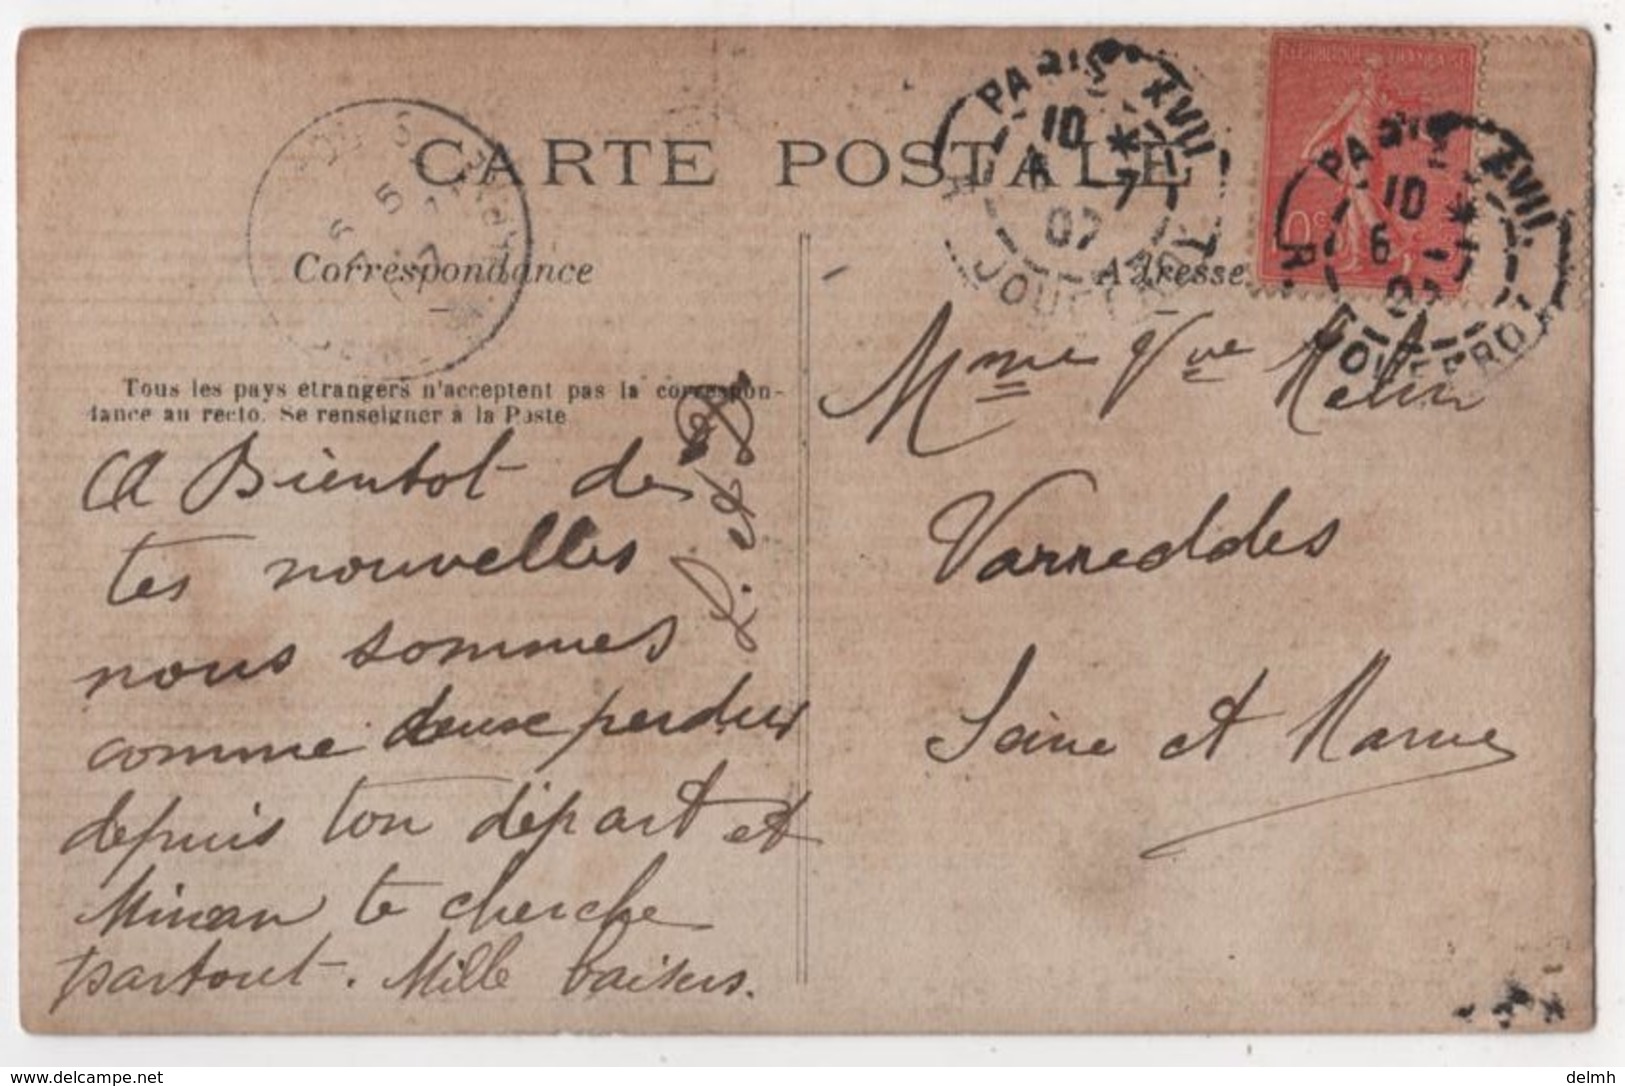 CARTE POSTALE
Correspondance
Adresse
Tous les pays étrangers n'acceptent pas la correspon-
dance au recto. Se renseigner à la Poste
A Bientot de
tes nouvelles
nous sommes
comme deux perdus
depuis ton départ et
Minou te cherche
partout. Mille baisers.
L. et
Mme Vve Melin
Varreddes
Seine et Marne
REPUBLIQUE FRANÇAISE
10c
PARIS XVIII
10 * 6 -7 07
R. JOUFFROY
PARIS XVIII.
10 * 6 07
R. JOUFFROY
delmh